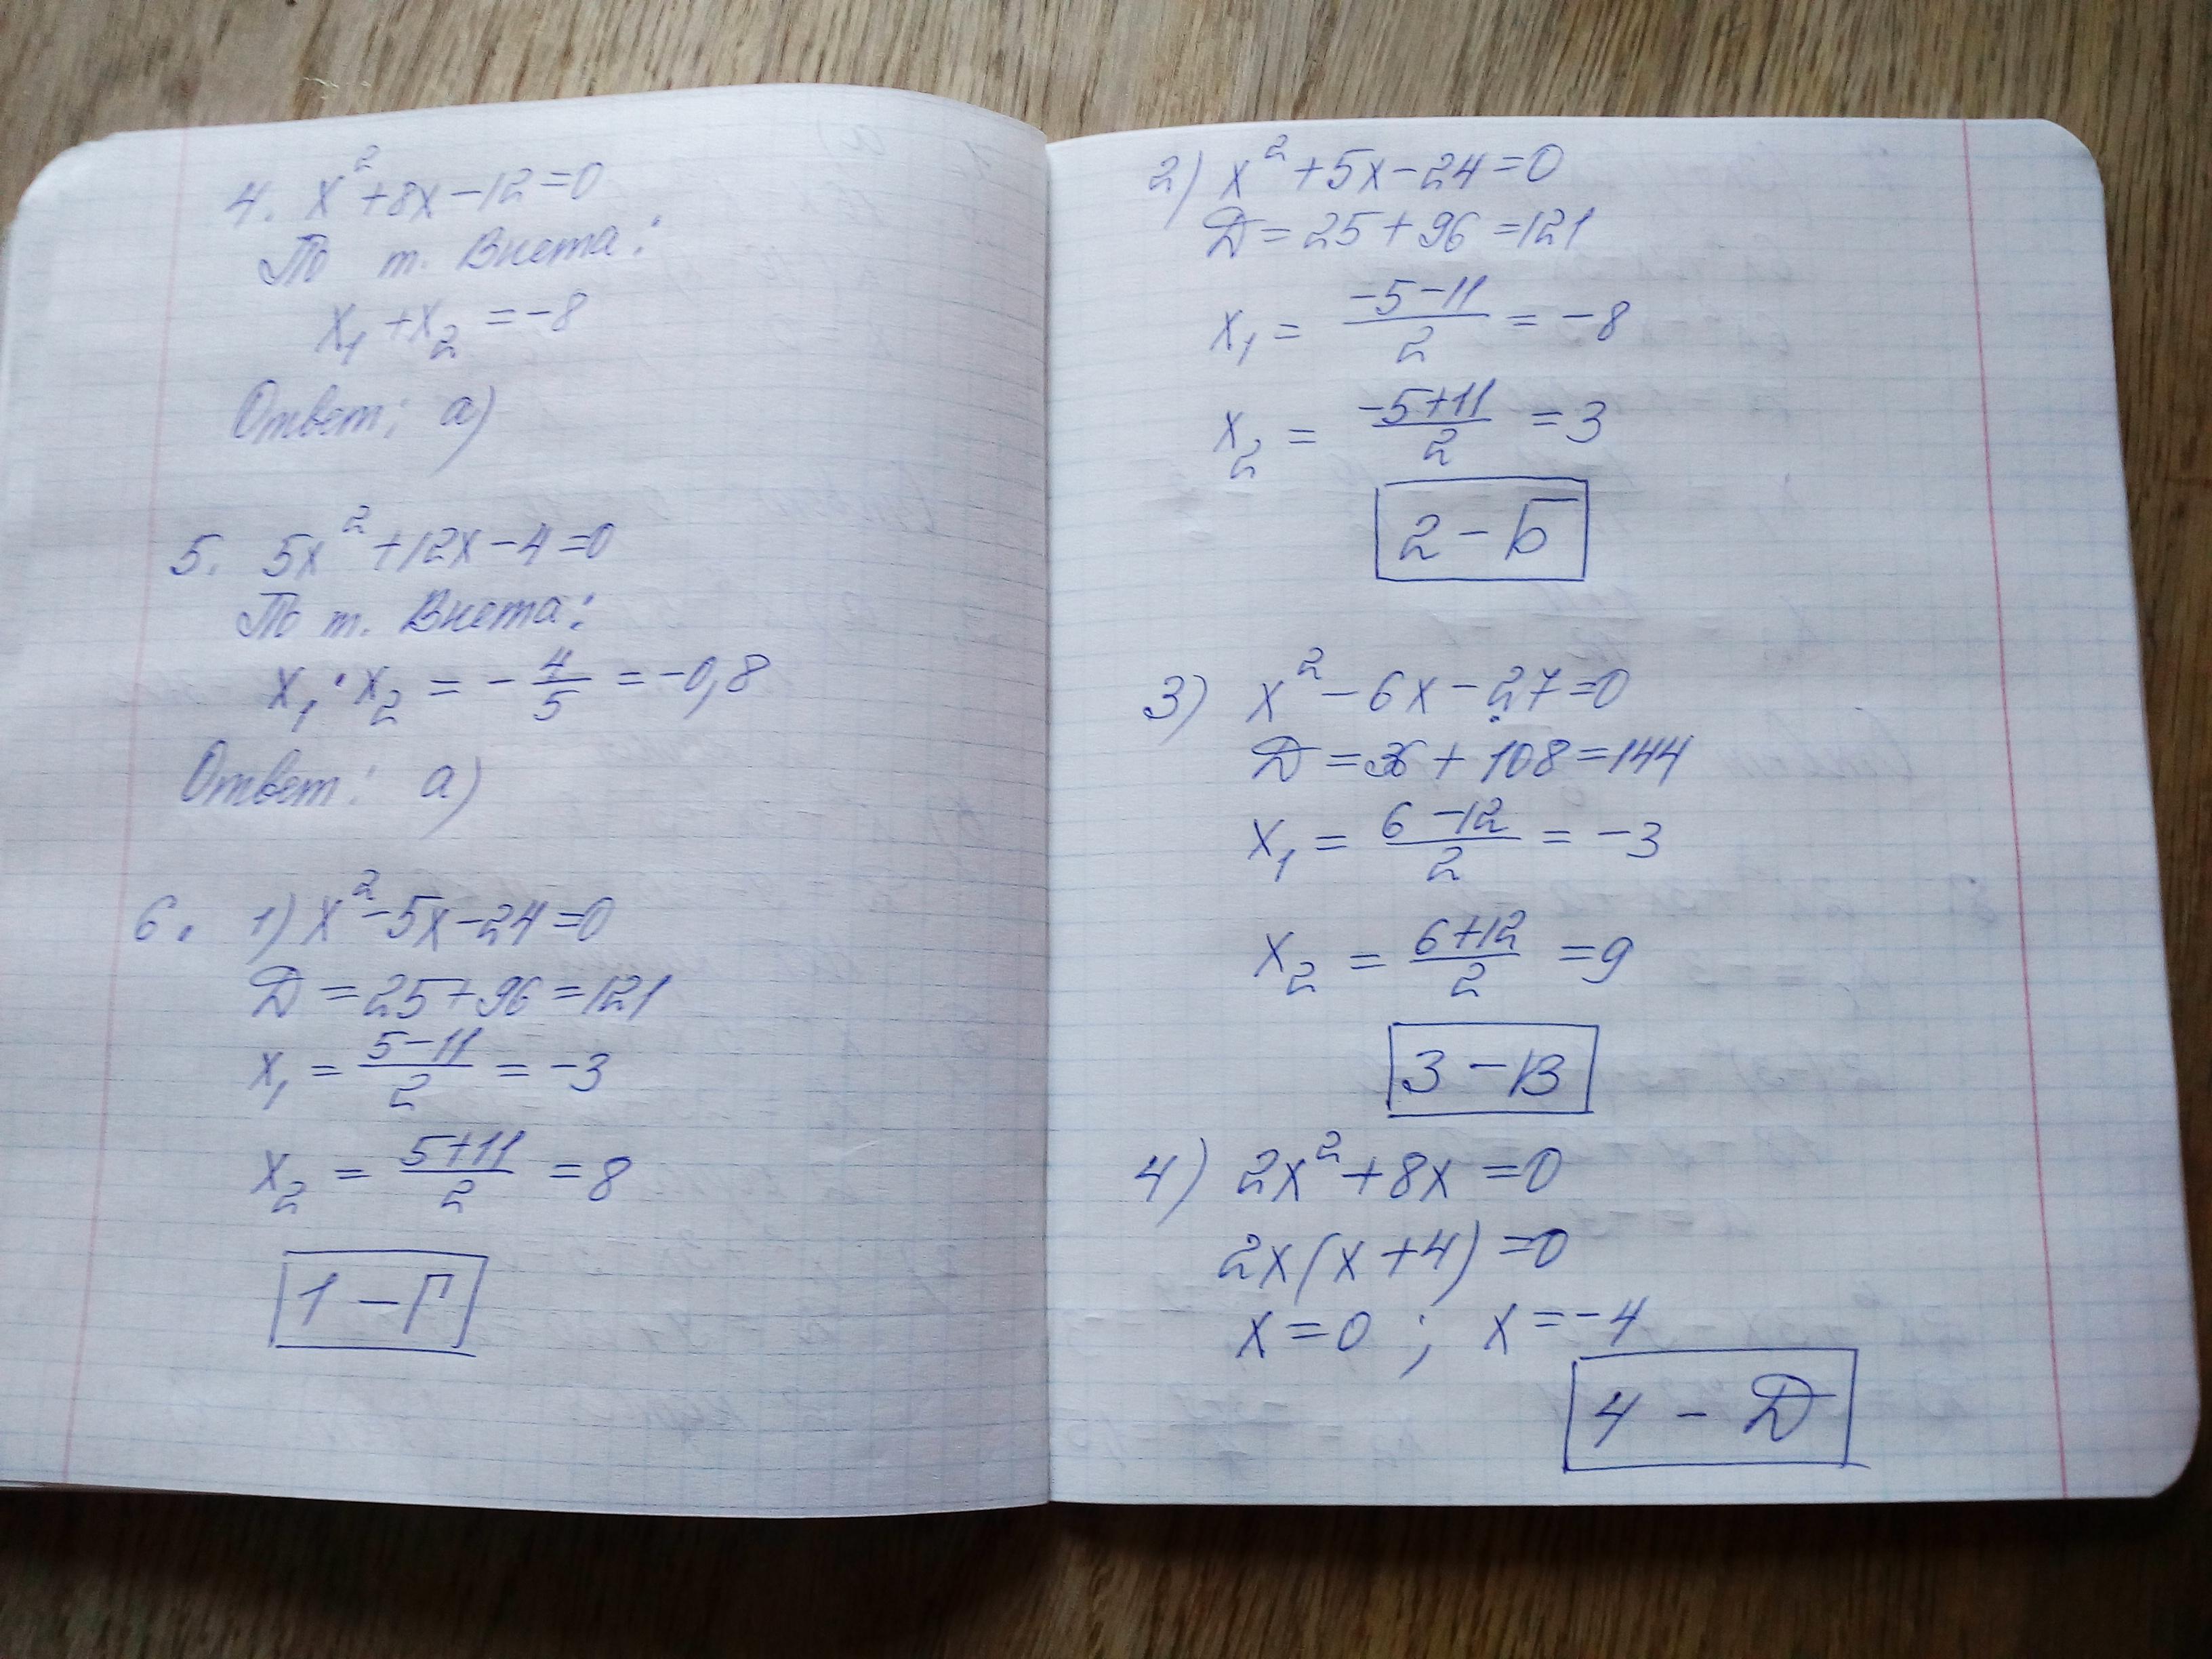 4. x²+8x-12=0
По т. Виета:
x₁+x₂=-8
Ответ: а)
5. 5x²+12x-4=0
По т. Виета:
x₁·x₂=-4/5=-0,8
Ответ: а)
6. 1) x²-5x-24=0
D=25+96=121
x₁=(5-11)/2=-3
x₂=(5+11)/2=8
1-Г
2) x²+5x-24=0
D=25+96=121
x₁=(-5-11)/2=-8
x₂=(-5+11)/2=3
2-Б
3) x²-6x-27=0
D=36+108=144
x₁=(6-12)/2=-3
x₂=(6+12)/2=9
3-В
4) 2x²+8x=0
2x(x+4)=0
x=0; x=-4
4-D